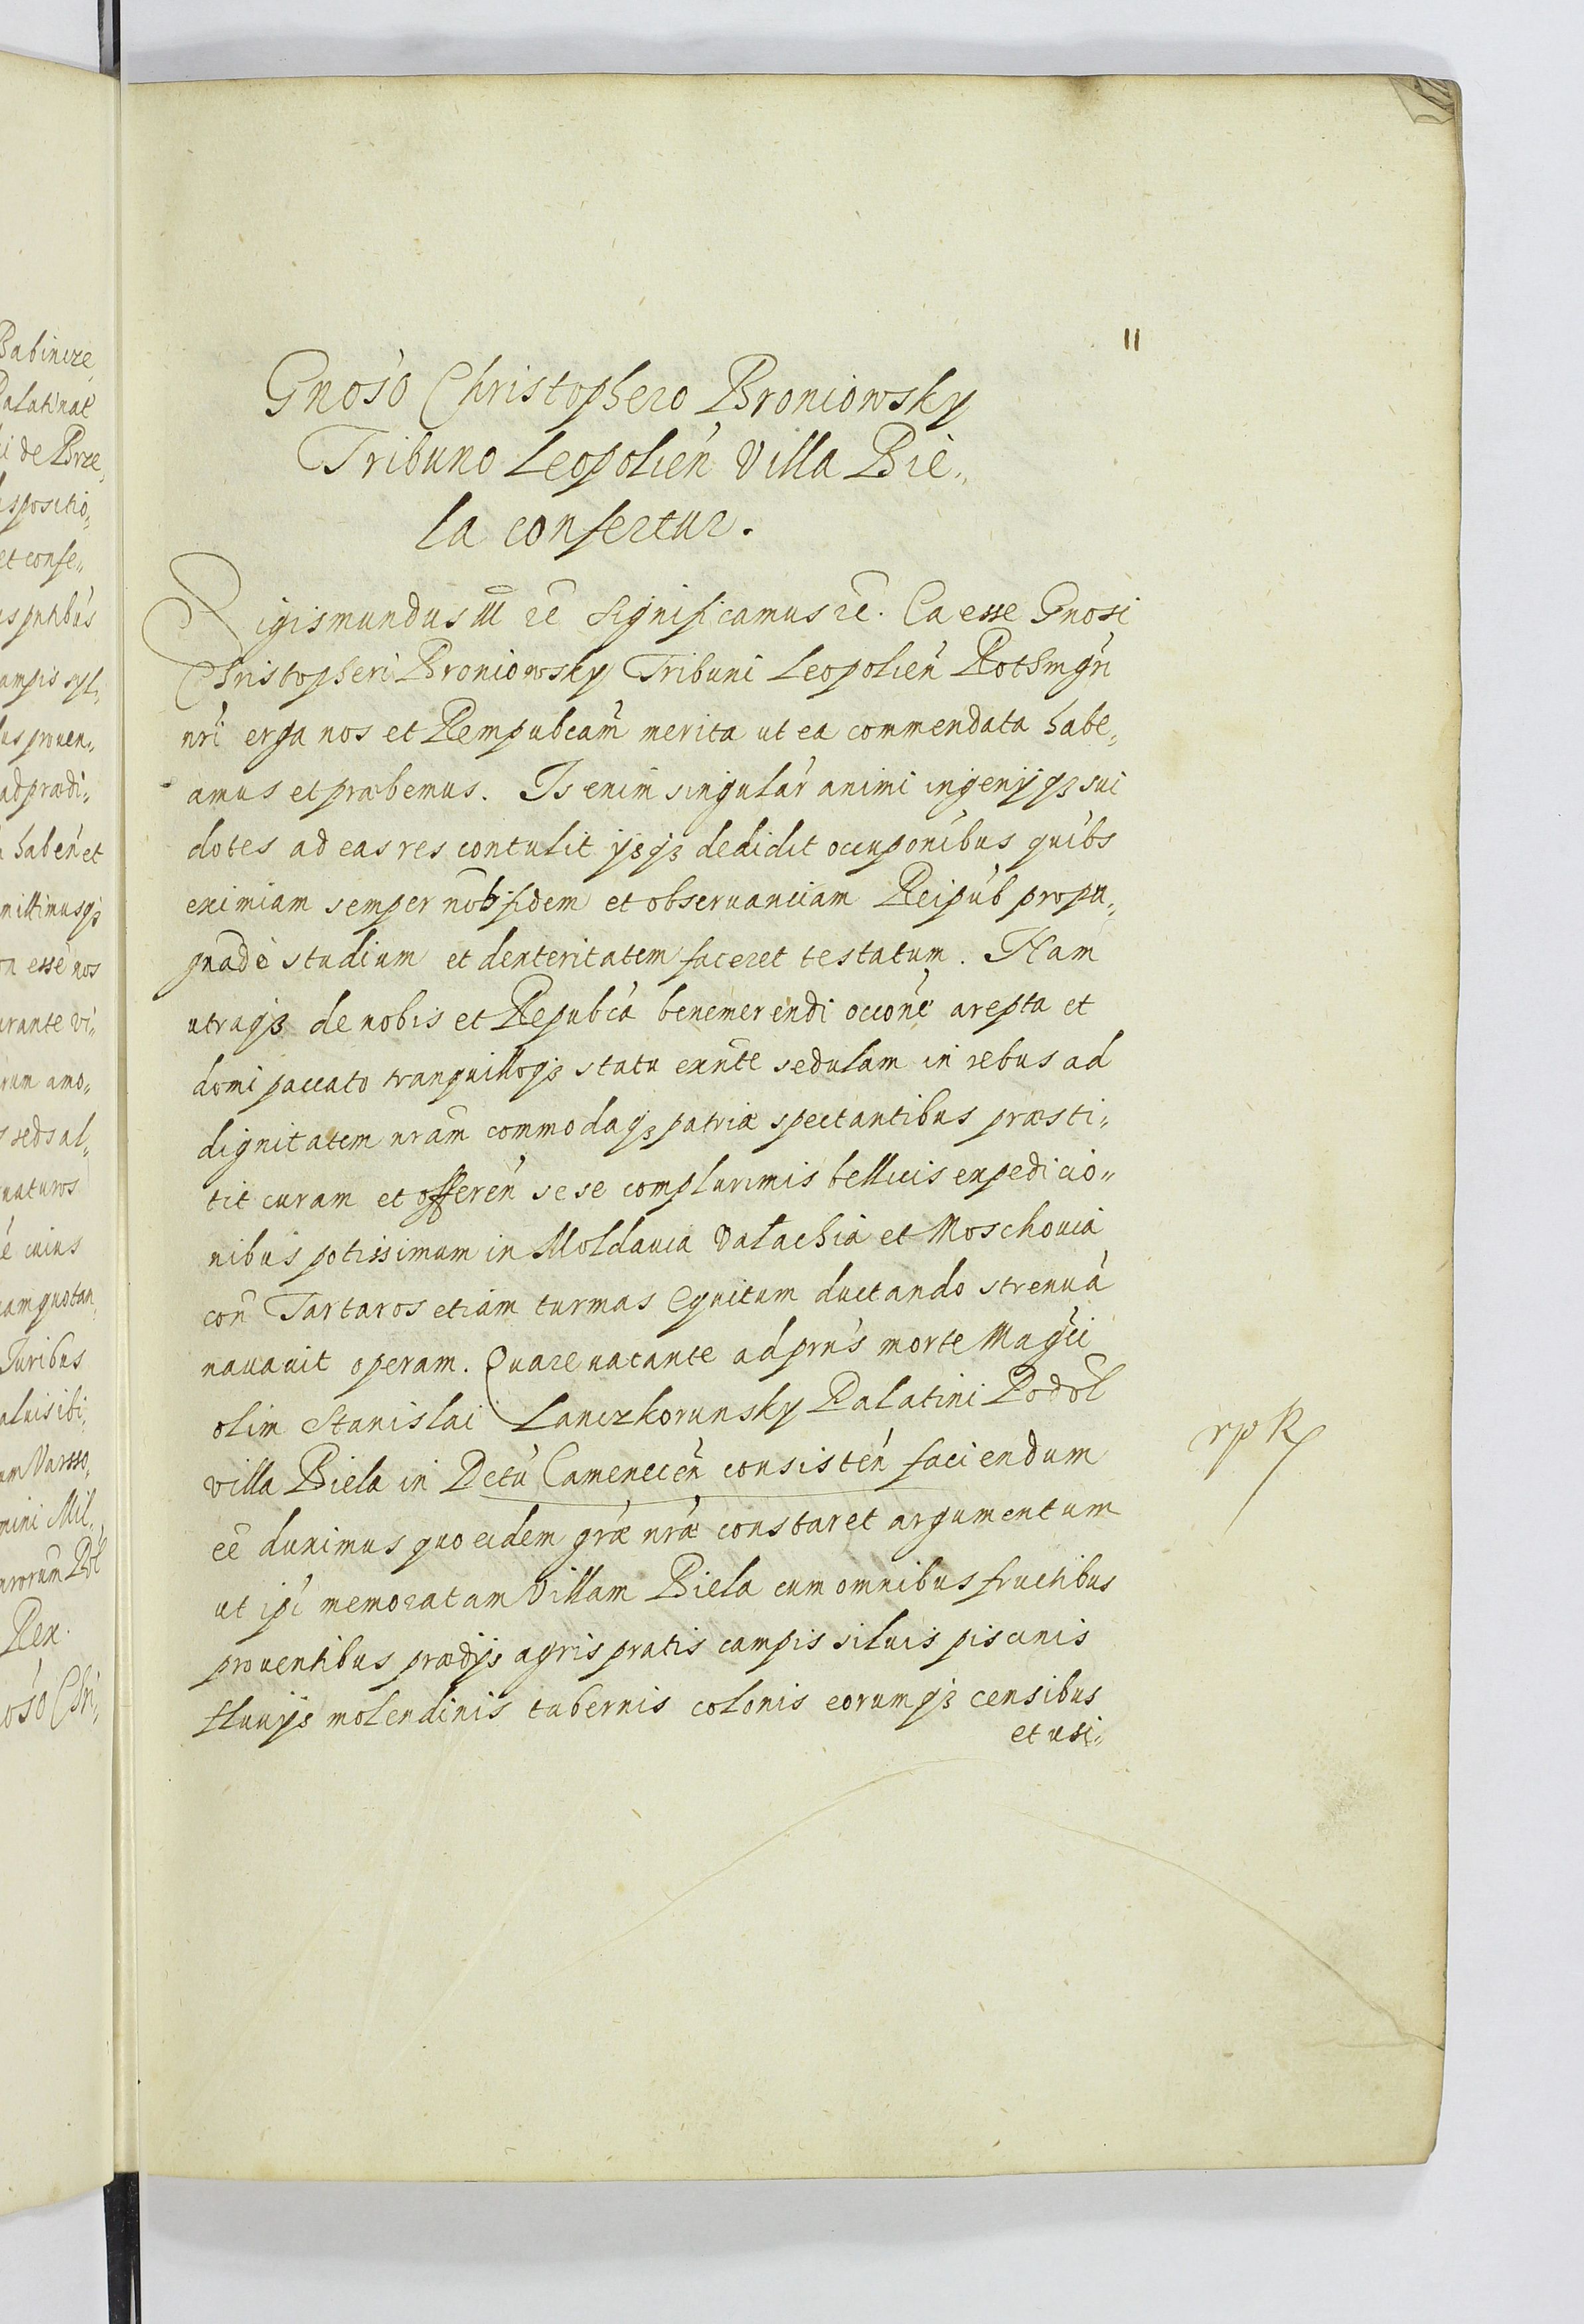 11
Gnoso Christophero Broniowsky
Tribuno Leopolien villa Bie„
la confertur.
Sigismundus III etc Significamus etc. Ea esse Gnosi
Christopheri Broniowsky Tribuni Leopolien Rothmgri
nri erga nos et Rempubcam merita ut ea commendata habe„
amus et præbemus. Is enim singular animi ingenijqȝ sui
dotes ad eas res contulit ysqȝ dedidit occuponibus quibs
eximiam semper nob fidem et observanciam Reipub propu„
gnadè studium et dexteritatem faceret testatum. Nam
utraqȝ de nobis et Repubca benemerendi occone arepta et
domi paccato tranquilloqȝ statu exnte sedulam in rebus ad
dignitatem nram commodaqȝ patriæ spectantibus præsti„
tit curam et offeren sese complurimis bellicis expedicio„
nibus potissimum in Moldavia Valachia et Moschouia
con Tartaros etiam turmas Equitum ductando strenua
navavit operam. Quare vacante ad prns morte Magci
olim Stanislai Lanczkorunsky Palatini Podol
villa Biela in Dctu Camenecen consisten faciendum
ee duximus quo eidem græ nræ constaret argumentum
ut ipi memoratam Villam Biela cum omnibus fructibus
proventibus prædijs agris pratis campis siluis piscinis
fluvijs molendinis tabernis colonis eorumqȝ censibus
et usi„
Babincze
Palatinat
i de Brze„
spositio„
et conse„
s pntibus
ampis syl„
us proven„
ad prædi„
haben et
mittimusqȝ
n esse nos
urante vi„
rum amo„
s seds al„
vaturos
e cuius
am quotan
Juribus
aluis ibi„
um Varsso„
mini Mil.
nrorum Pol
Rex.
oso Chri„